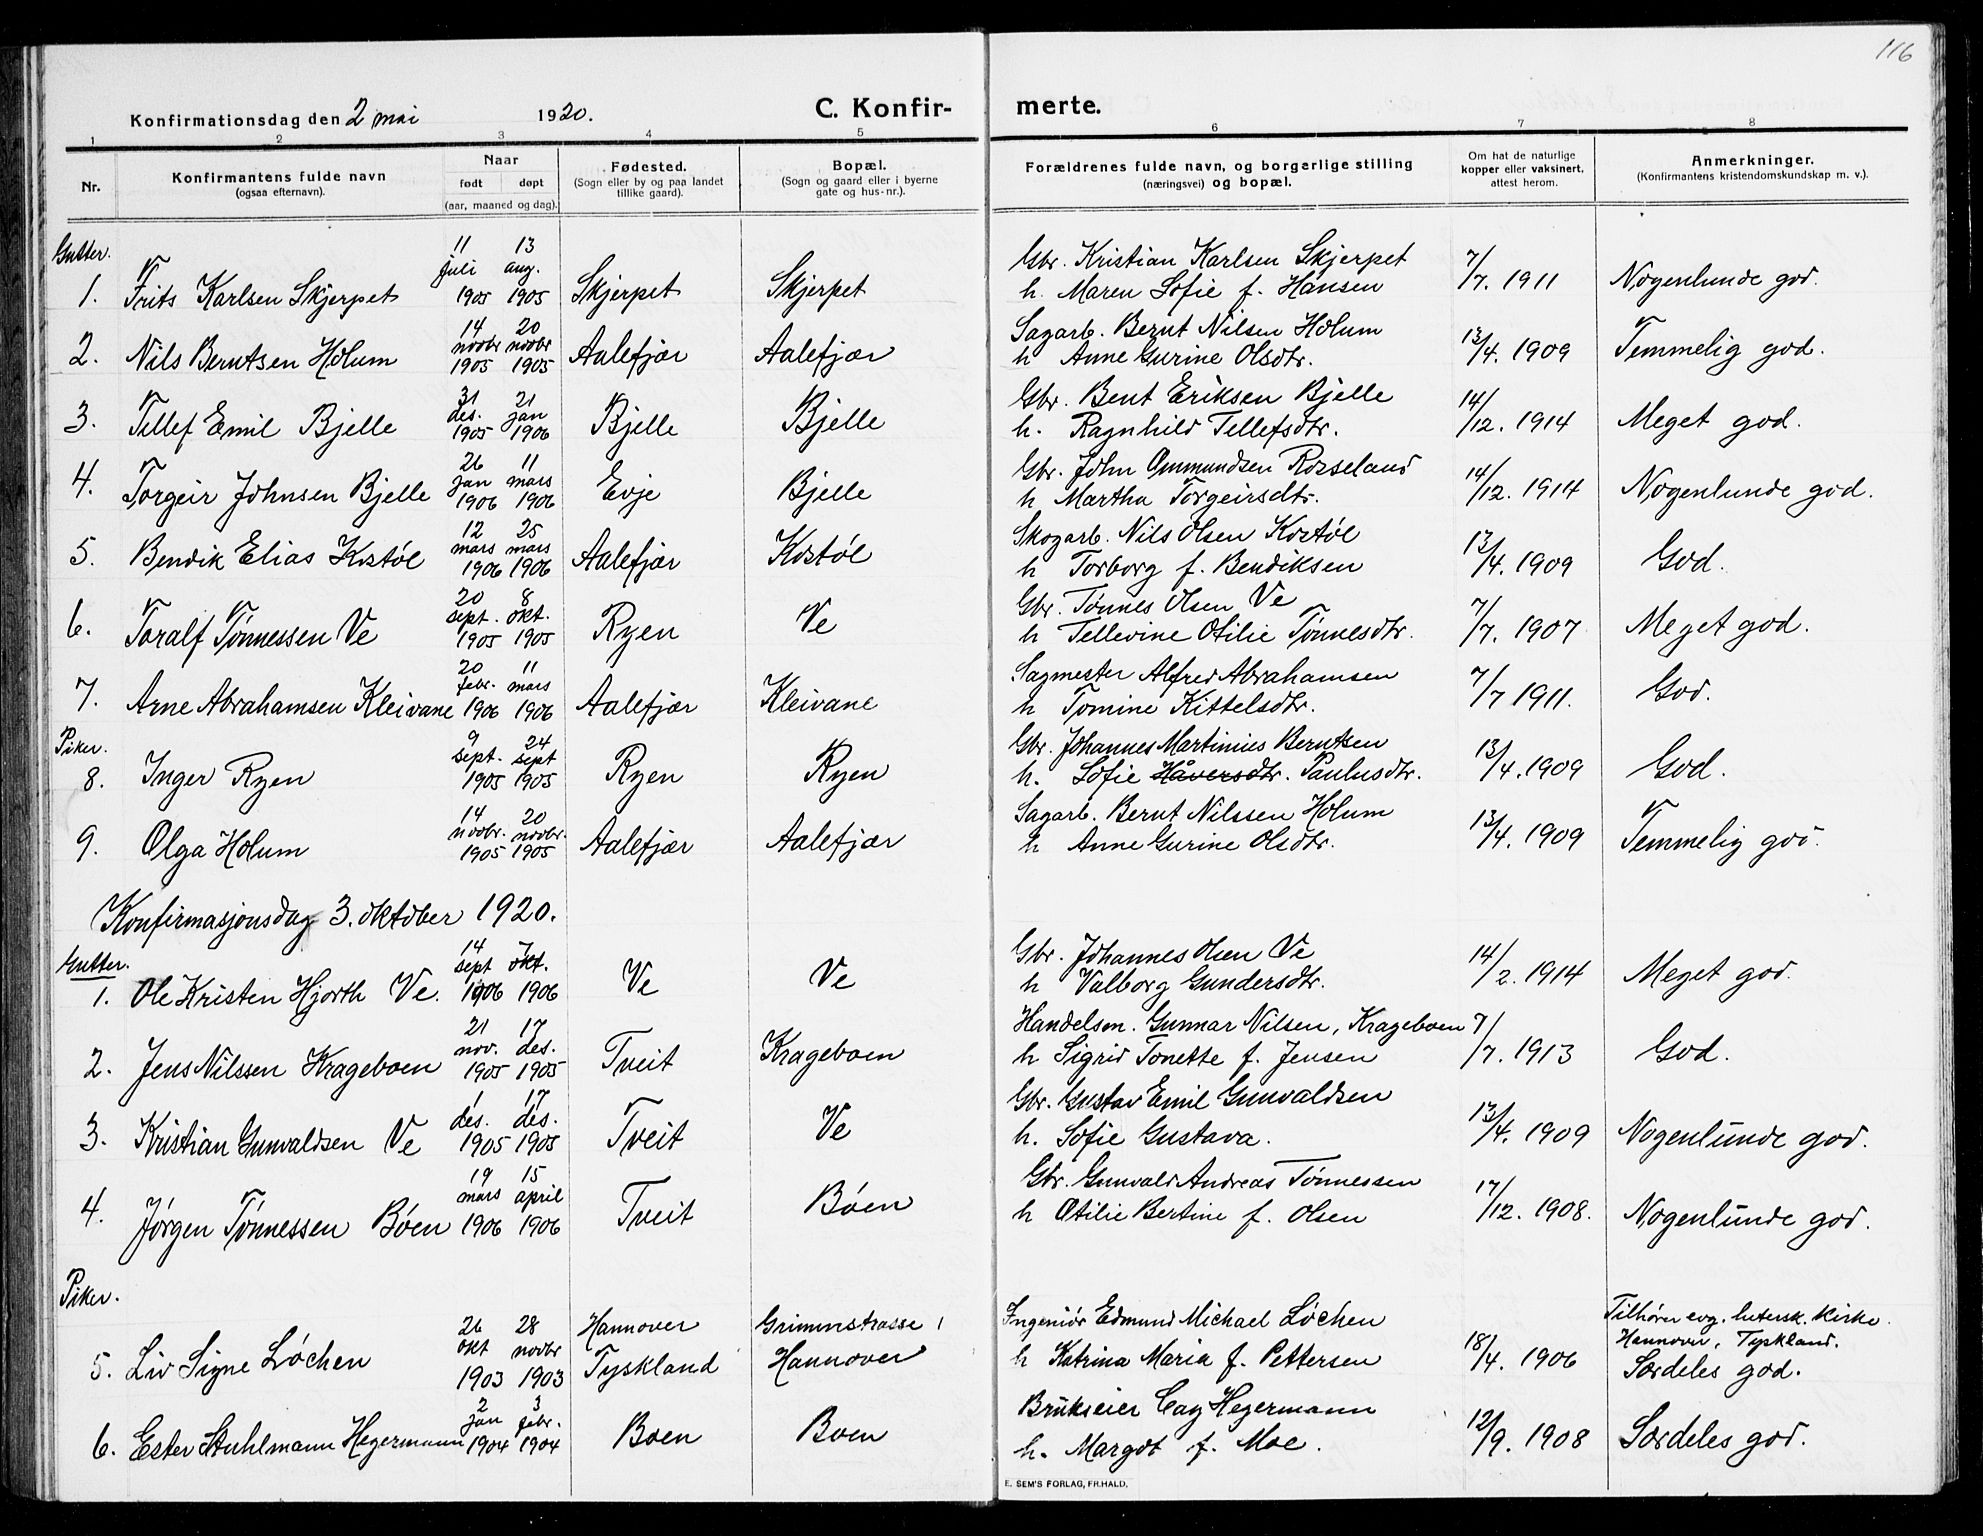 116
Konfirmationsdag den 2 mai 1920. C. Konfir- merte.
1 2 3 4 5 6 7 8
Nr. Konfirmantens fulde navn (ogsaa efternavn). Naar født døpt (aar, maaned og dag). Fødested. (Sogn eller by og paa landet tillike gaard). Bopæl. (Sogn og gaard eller i byerne gate og hus-nr.). Forældrenes fulde navn, og borgerlige stilling (næringsvei) og bopæl. Om hat de naturlige kopper eller vaksinert, attest herom. Anmerkninger. (Konfirmantens kristendomskundskap m. v.).
Gutter.
1. Frits Karlsen Skjerpet 11 juli 1905 13 aug. 1905 Skjerpet Skjerpet Gbr. Kristian Karlsen Skjerpet h. Maren Sofie f. Hansen 7/7. 1911 Nogenlunde god.
2. Nils Berntsen Holum 14 novbr 1905 20 novbr 1905 Aalefjær Aalefjær Sagarb. Bernt Nilsen Holum h Anne Gurine Olsdtr. 13/4. 1909 Temmelig god.
3. Tellef Emil Bjelle 31 des. 1905 21 jan 1906 Bjelle Bjelle Gbr. Bent Eriksen Bjelle h. Ragnhild Tellefsdtr. 14/12. 1914 Meget god.
4. Torgeir Johnsen Bjelle 26 jan 1906 11 mars 1906 Evje Bjelle Gbr. John Ommundsen Rosseland h Martha Torgeirsdtr. 14/12. 1914 Nogenlunde god.
5. Bendik Elias Kostøl 12 mars 1906 25 mars 1906 Aalefjær Kostøl Skogarb. Nils Olsen Kostøl h Torborg f. Bendiksen 13/4. 1909 God.
6. Toralf Tønnessen Ve 20 sept. 1905 8 okt. 1905 Ryen Ve Gbr. Tønnes Olsen Ve h Tellevine Otilie Tønnesdtr. 7/7. 1907 Meget god.
7. Arne Abrahamsen Kleivane 20 febr. 1906 11 mars 1906 Aalefjær Kleivane Sagmester Alfred Abrahamsen h Tomine Kittelsdtr. 7/7 1911. God.
Piker.
8. Inger Ryen 9 sept. 1905 24 sept 1905 Ryen Ryen Gbr. Johannes Martinius Berntsen h. Sofie Håversdtr. Paulusdtr. 13/4. 1909 God.
9. Olga Holum 14 novbr. 1905 20 novbr. 1905 Aalefjær Aalefjær Sagarb. Bernt Nilssen Holum h Anne Gurine Olsdtr. 13/4. 1909 Temmelig god.
Konfirmasjonsdag 3. oktober 1920.
Gutter.
1. Ole Kristen Hjorth Ve. 14 sept 1906 7 okt. 1906 Ve Ve Gbr. Johannes Olsen Ve h Valborg Gundersdtr. 14/2. 1914 Meget god.
2. Jens Nilssen Krageboen 21 nov. 1905 17 des. 1905 Tveit Krageboen Handelsm. Gunnar Nilsen, Krageboen h Sigrid Tonette f. Jensen 7/7. 1913 God.
3. Kristian Gunvaldsen Ve 1 des. 1905 17 des. 1905 Tveit Ve Gbr. Gustav Emil Gunvaldsen h. Sofie Gustava. 13/4. 1909 Nogenlunde god.
4. Jørgen Tønnessen Bóen 19 mars 1906 15 april 1906 Tveit Bóen Gbr. Gunvald Andreas Tønnessen h Otilie Bertine f. Olsen 17/12. 1908. Nogenlunde god.
Piker.
5. Liv Signe Lóchen 26 okt 1903 28 novbr 1903 Hannover Tyskland Grimmstrasse 1 Hannover Ingeniør Edmund Michael Lochen h Katrina Maria f. Pettersen 18/4. 1906 Tilhører evg. lutersk. kirke Hannover, Tyskland. Særdeles god.
6. Ester Stuhlmann Hegermann 2 jan 1904 3 febr. 1904 Boen Boen Brukseier Cay Hegermann h. Margot f. Moe. 12/9. 1908 Særdeles god.
E. SEM'S FORLAG, FR.HALD.